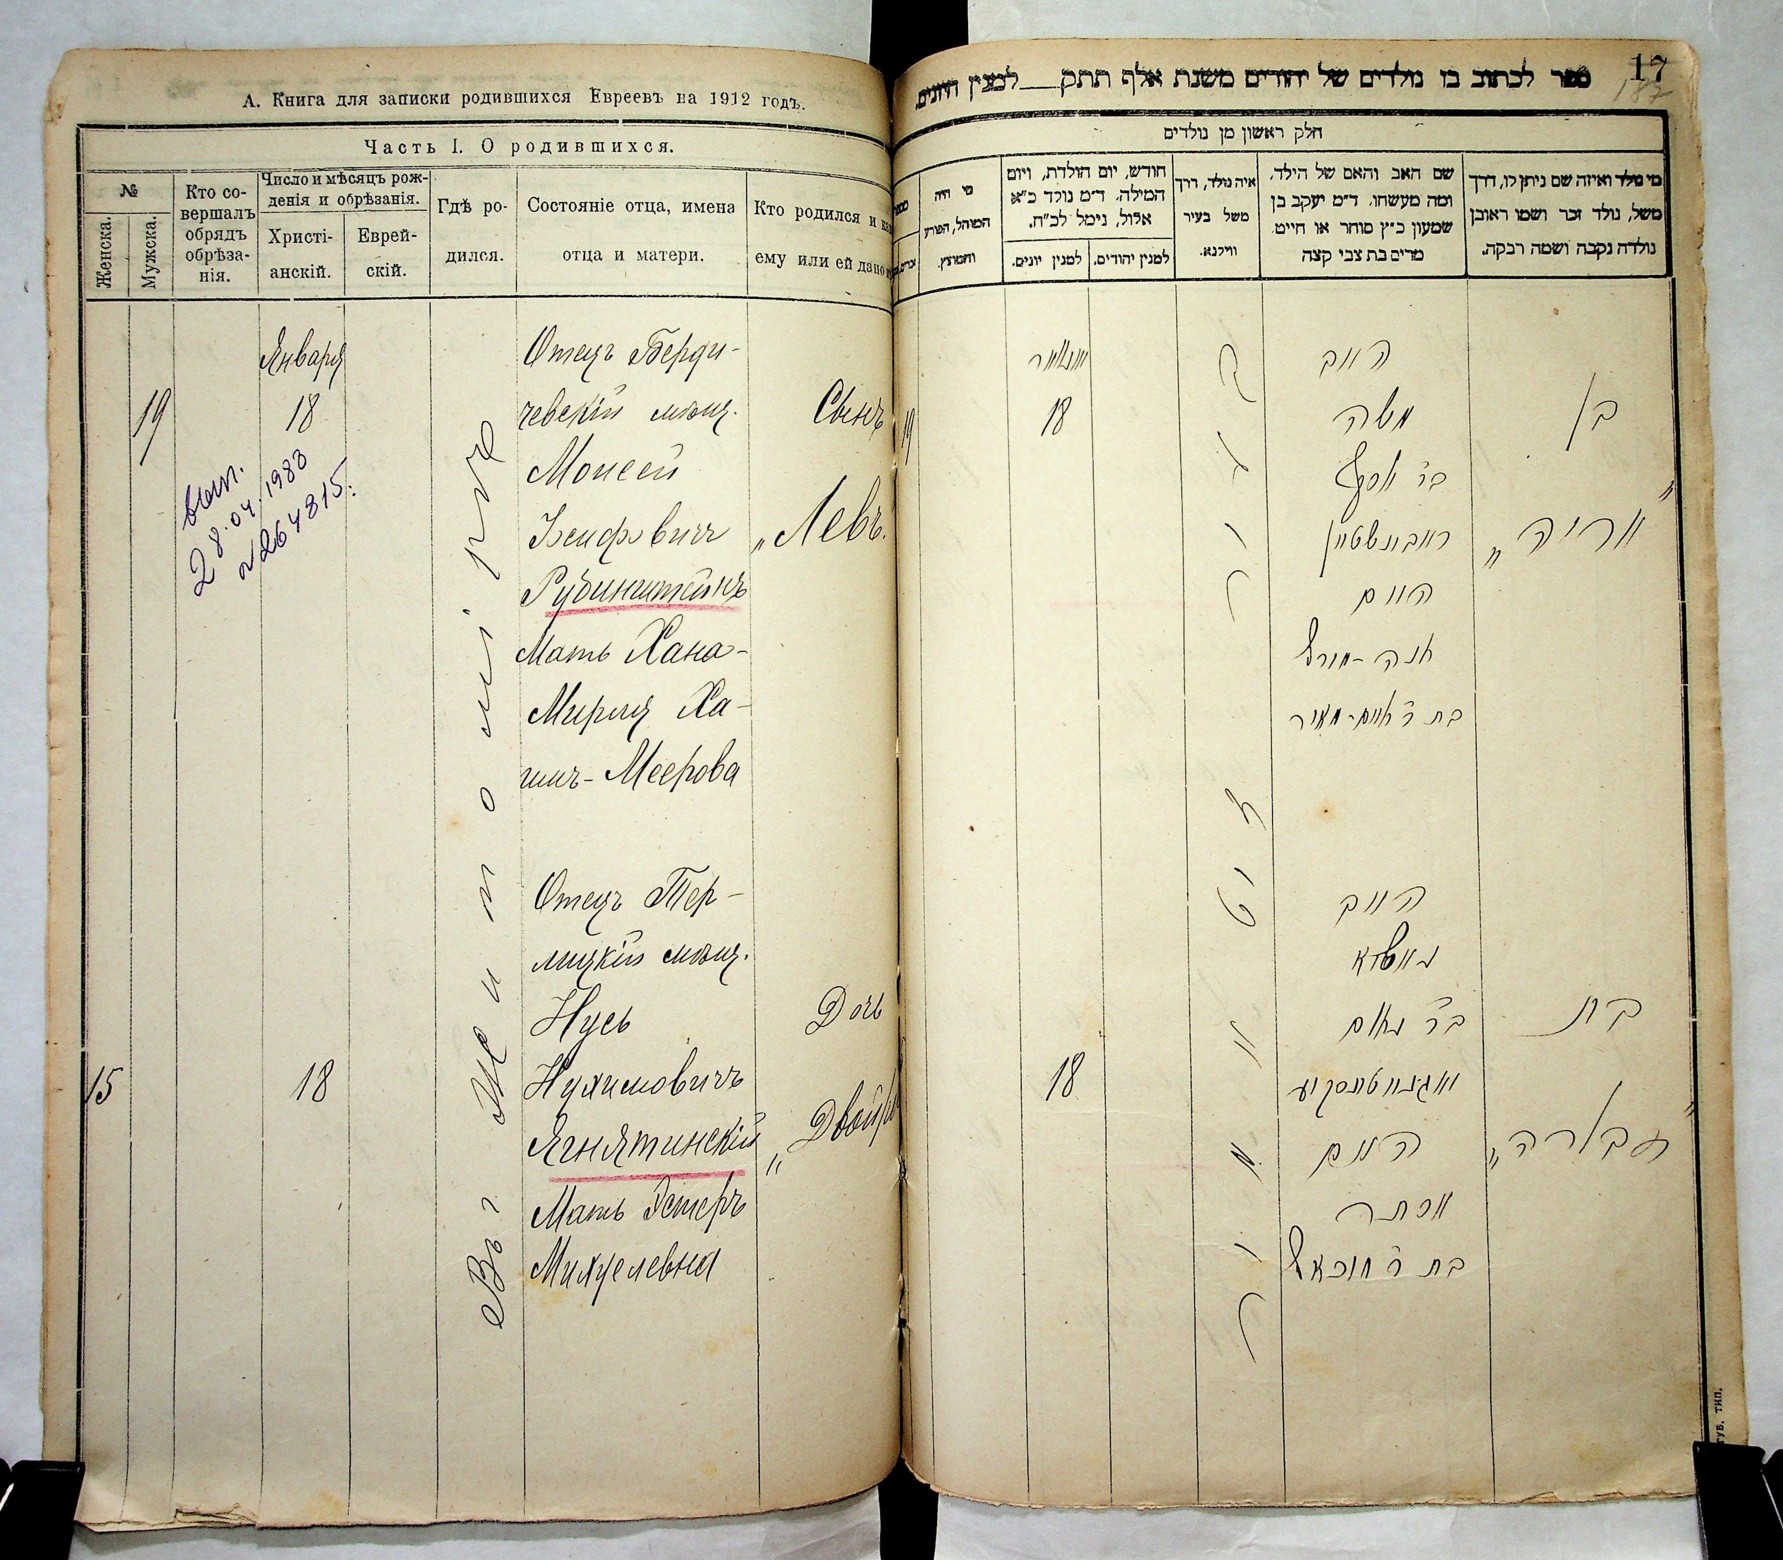 А. Книга для записки родившихся Евреевъ на 1912 годъ.
Часть I. О родившихся.
№
Женска.
Мужска.
Кто со-
вершалъ
обрядъ
обрѣза-
нія.
Число и мѣсяцъ рож-
денія и обрѣзанія.
Христі-
анскій.
Еврей-
скій.
Гдѣ ро-
дился.
Состояніе отца, имена
отца и матери.
Кто родился и
ему или ей дано
19
вып.
28.04.1983
№264815.
Января
18
Въ г. Житомірѣ
Отецъ Берди-
чевскій мѣщ.
Моисей
Іосифовичъ
Рубинштейнъ
Мать Хана-
Мирля Ха-
имъ-Меерова
Сынъ
„Левъ.
15
18
Отецъ Тер-
лицкій мѣщ.
Нусь
Нухимовичъ
Ягнятинскій
Мать Эстеръ
Михелевна
Дочь
„Двойра
17
187
ספר לכתוב בו נולדים של יהודים משנת אלף תתק___למנין היונים.
חלק ראשון מן נולדים
מי נולד ואיזה שם ניתן לו, דרך
משל, נולד זכר ושמו ראובן
נולדה נקבה ושמה רבקה.
שם האב והאם של הילד,
ומה מעשהו, ד״מ יעקב בן
שמעון כ״ץ סוחר או חייט
מרים בת צבי קצה
איה נולד, דרך
משל בעיר
ווילנא.
חודש, יום הולדת, ויום
המילה, ד״מ נולד כ״א
אלול, נימל לכ״ח.
למנין יהודים.
למנין יונים.
מי היה
המוהל, הפורע
והמוצץ.
יאנואר
18
19
זיטאמיר
האב
משה
בר יוסף
ראבינשטיין
האם
חנה-מירל
בת ר חיים-מאיר
בן
„אריה"
18
האב
בר נחום
האם
אסתר
בת ר מיכאל
בת
„דבורה"
ГУБ. ТИП.